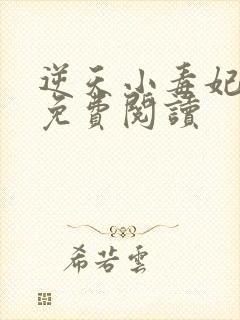 逆天小毒妃
免費閱讀
希若雲